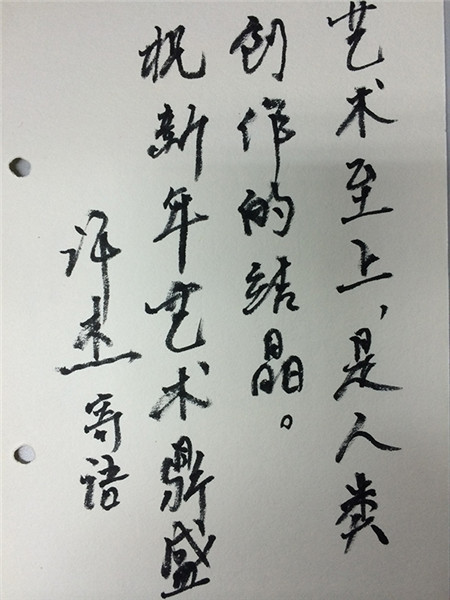 艺术至上,是人类
创作的结晶。
祝新年艺术鼎盛
许杰寄语